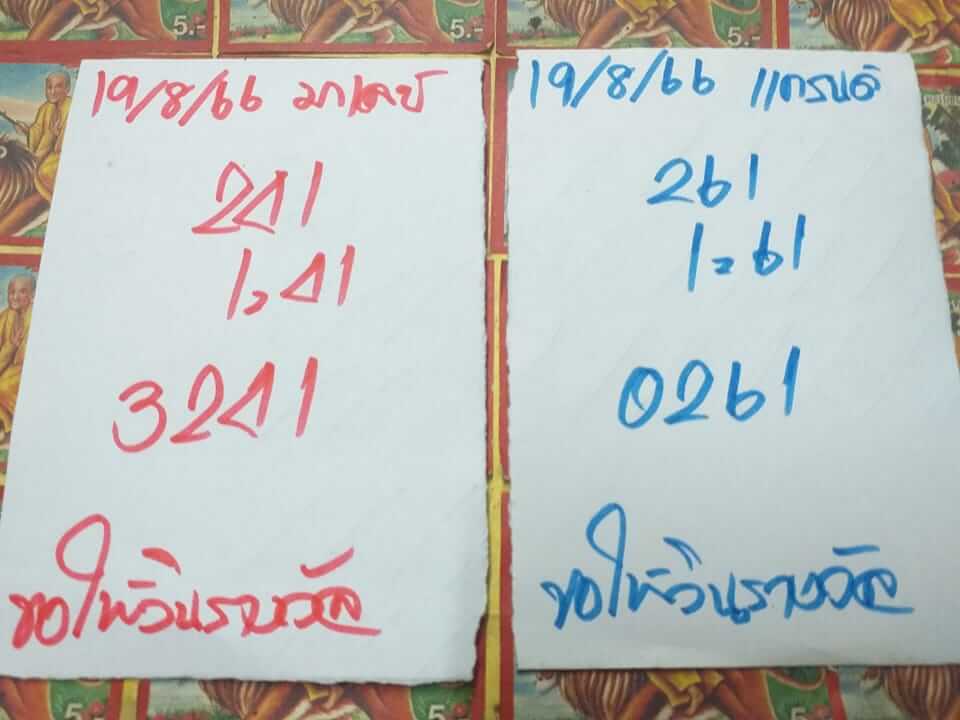 19/8/66 มาเลย์
241
1=41
3241
ขอให้วินรางวัล
19/8/66 แกรนด์
261
1=61
0261
ขอให้วินรางวัล
5.-
5.-
5.-